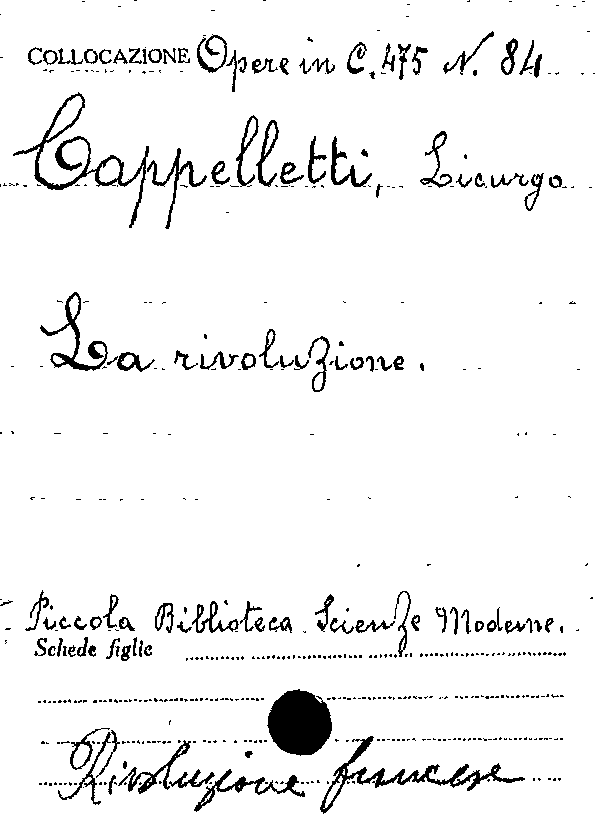 COLLOCAZIONE Opere in C. 475 N. 84
Cappelletti, Licurgo
La rivoluzione.
Piccola Biblioteca Scienze Moderne.
Schede figlie
Rivoluzione francese